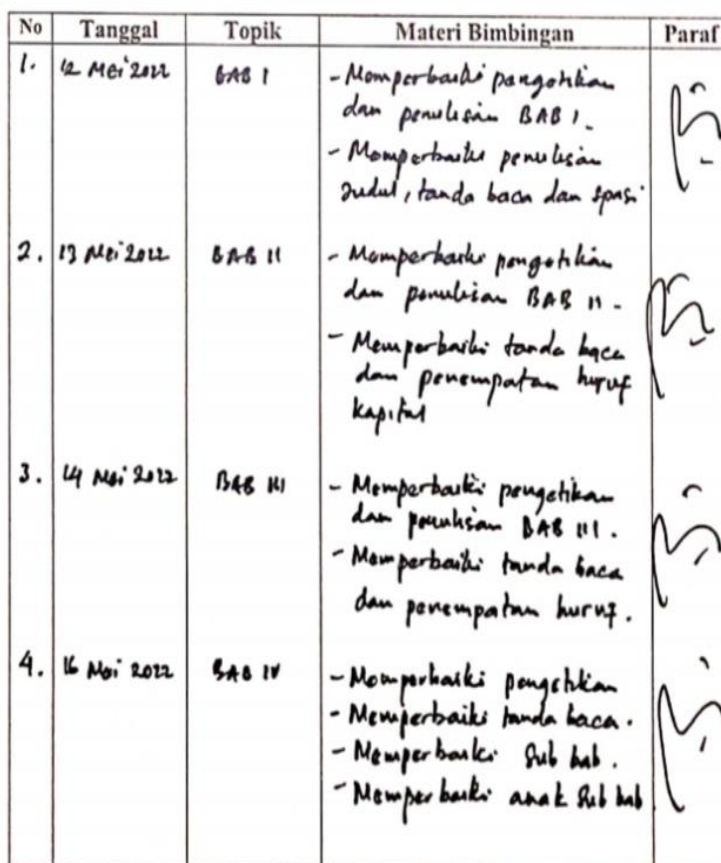 No Tanggal Topik Materi Bimbingan Paraf
1. 12 Mei 2022 BAB I - Memperbaiki pengetikan
dan penulisan BAB I.
- Memperbaiki penulisan
Judul, tanda baca dan spasi
2. 13 Mei 2022 BAB II - Memperbaiki pengetikan
dan penulisan BAB II.
- Memperbaiki tanda baca
dan penempatan huruf
kapital
3. 14 Mei 2022 BAB III - Memperbaiki pengetikan
dan penulisan BAB III.
- Memperbaiki tanda baca
dan penempatan huruf.
4. 16 Mei 2022 BAB IV - Memperbaiki pengetikan
- Memperbaiki tanda baca.
- Memperbaiki Sub bab.
- Memperbaiki anak Sub bab